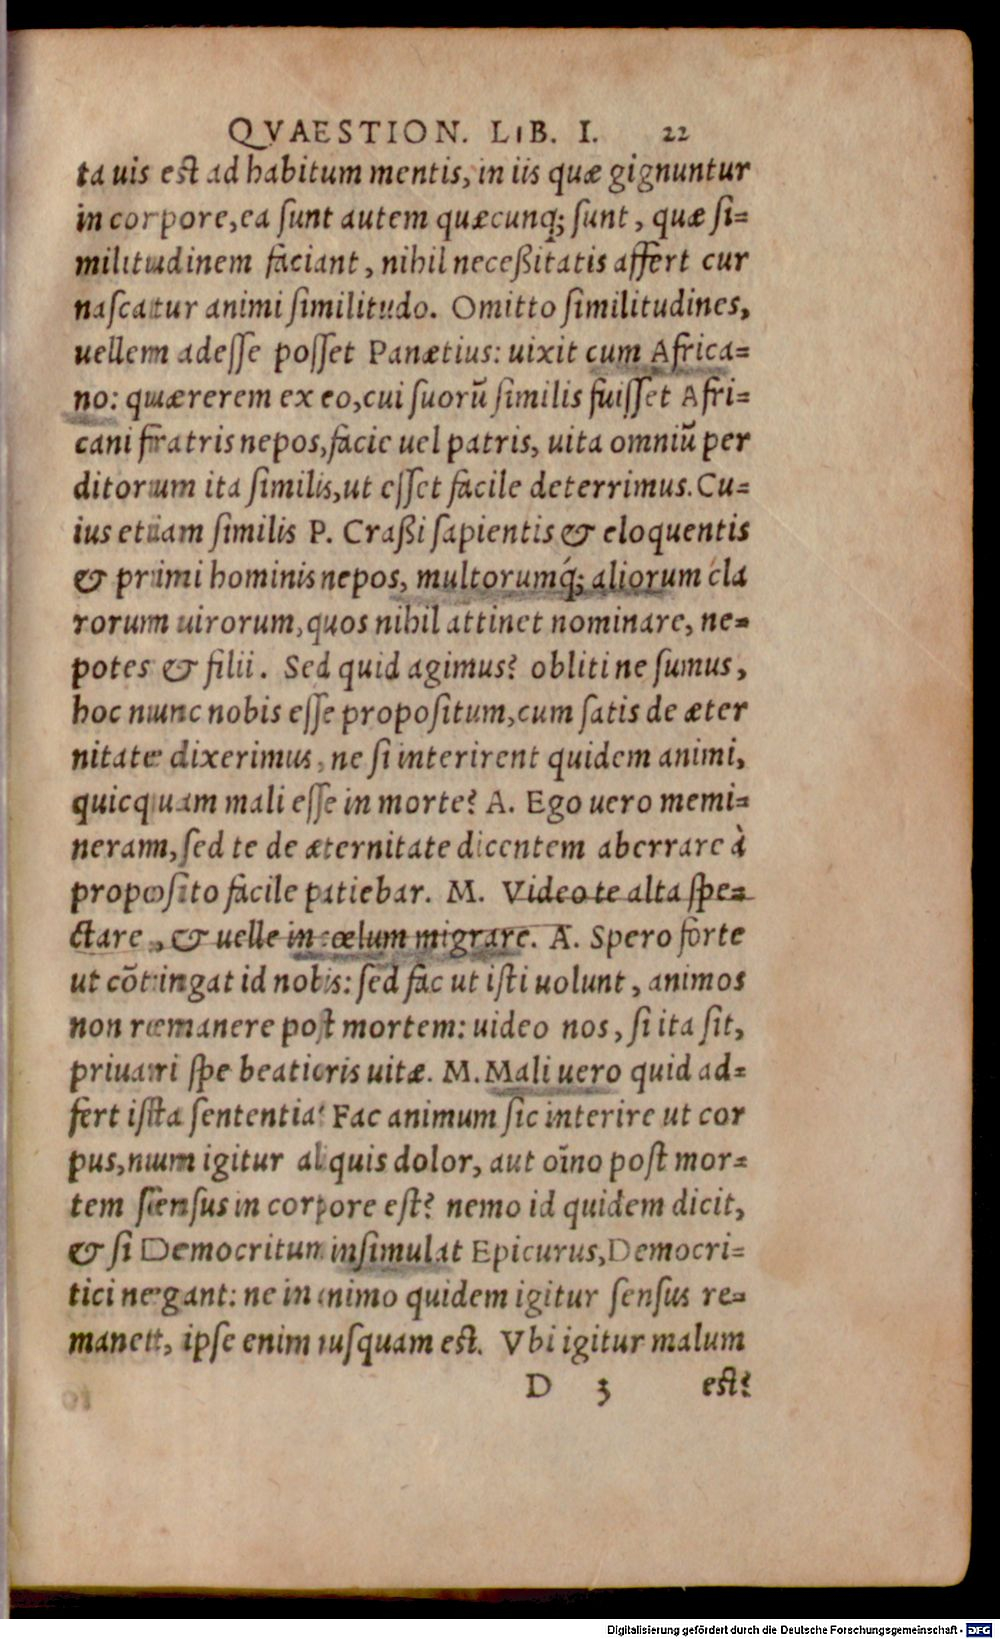 QVAESTION. LIB. I. 22
ta uis est ad habitum mentis, in iis quæ gignuntur
in corpore, ea sunt autem quæcunq; sunt, quæ si=
militudinem faciant, nihil neceßitatis affert cur
nascatur animi similitudo. Omitto similitudines,
uellem adesse posset Panætius: uixit cum Africa=
no: quærerem ex eo, cui suorũ similis fuisset Afri=
cani fratris nepos, facie uel patris, uita omniũ per
ditorum ita similis, ut esset facile deterrimus. Cu=
ius etiam similis P. Craßi sapientis & eloquentis
& primi hominis nepos, multorumq́; aliorum cla
rorum uirorum, quos nihil attinet nominare, ne=
potes & filii. Sed quid agimus? obliti ne sumus,
hoc nunc nobis esse propositum, cum satis de æter
nitate dixerimus, ne si interirent quidem animi,
quicquam mali esse in morte? A. Ego uero memi=
neram, sed te de æternitate dicentem aberrare à
proposito facile patiebar. M. Video te alta spe=
ctare, & uelle in cœlum migrare. A. Spero forte
ut cõtingat id nobis: sed fac ut isti uolunt, animos
non remanere post mortem: uideo nos, si ita sit,
priuari spe beatioris uitæ. M. Mali uero quid ad=
fert ista sententia? Fac animum sic interire ut cor
pus, num igitur aliquis dolor, aut oĩno post mor=
tem sensus in corpore est? nemo id quidem dicit,
& si Democritum insimulat Epicurus, Democri=
tici negant: ne in animo quidem igitur sensus re=
manet, ipse enim nusquam est. Vbi igitur malum
D 3 est?
Digitalisierung gefördert durch die Deutsche Forschungsgemeinschaft - DFG